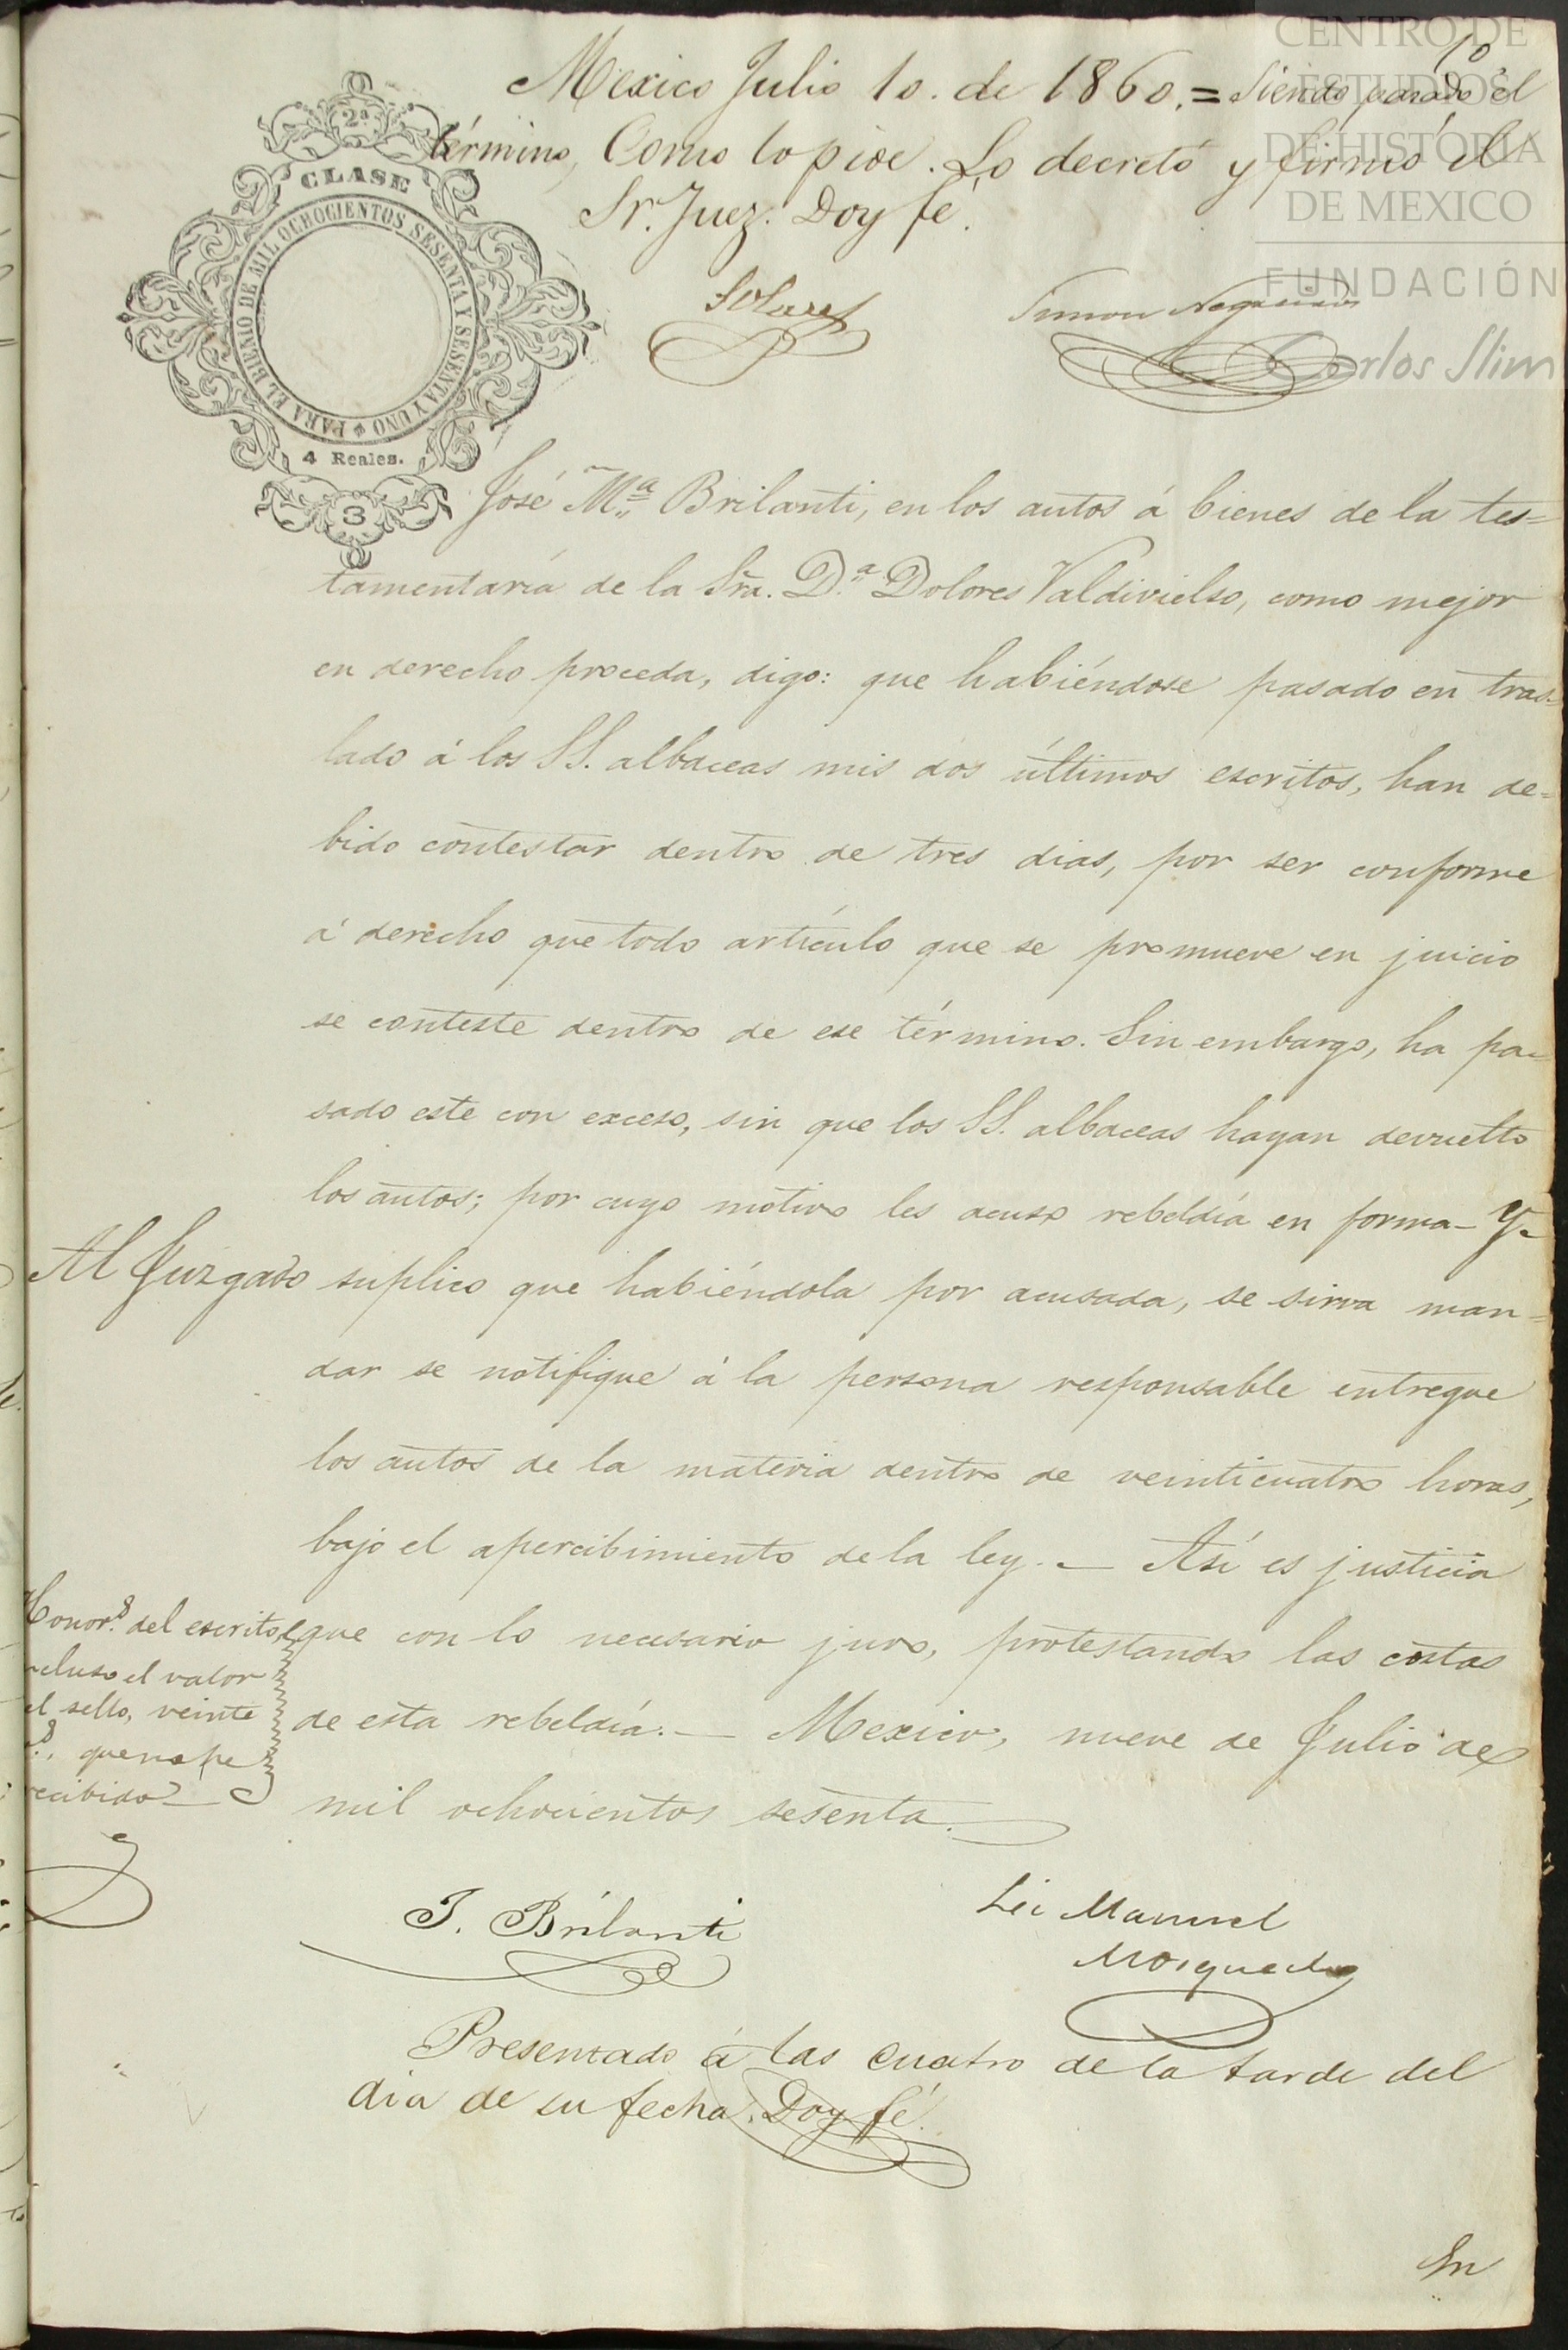 CENTRO DE
ESTUDIOS
DE HISTORIA
DE MEXICO
FUNDACIÓN
Carlos Slim
10
Mexico Julio 10. de 1860.= Siendo pasado el
término, Como lo pide. Lo decretó y firmó el
Sr. Juez. Doy fé.
2ª
CLASE
PARA EL BIENIO DE MIL OCHOCIENTOS SESENTA Y SESENTA Y UNO
4 Reales.
3
Solares
Simon Negreiros
José M.ª Brilanti, en los autos á bienes de la tes=
tamentaría de la Sra. D.ª Dolores Valdivielso, como mejor
en derecho proceda, digo: que habiéndose pasado en tras-
lado á los SS. albaceas mis dos últimos escritos, han de=
bido contestar dentro de tres dias, por ser conforme
á derecho que todo artículo que se promueve en juicio
se conteste dentro de ese término. Sin embargo, ha pa-
sado este con exceso, sin que los SS. albaceas hayan devuelto
los autos; por cuyo motivo les acuso rebeldía en forma— Y-
Al Juzgado suplico que habiéndola por acusada, se sirva man=
dar se notifique á la persona responsable entregue
los autos de la materia dentro de veinticuatro horas,
bajo el apercibimiento de la ley.— Así es justicia
que con lo necesario juro, protestando las costas
de esta rebeldía.— Mexico, nueve de Julio de
mil ochocientos sesenta.
Honor.s del escrito,
cluso el valor
el sello, veinte
que no he
recibido—
J. Brilanti
Lic Manuel
Mosqueda
Presentado á las cuatro de la tarde del
dia de su fecha. Doy fé.
En